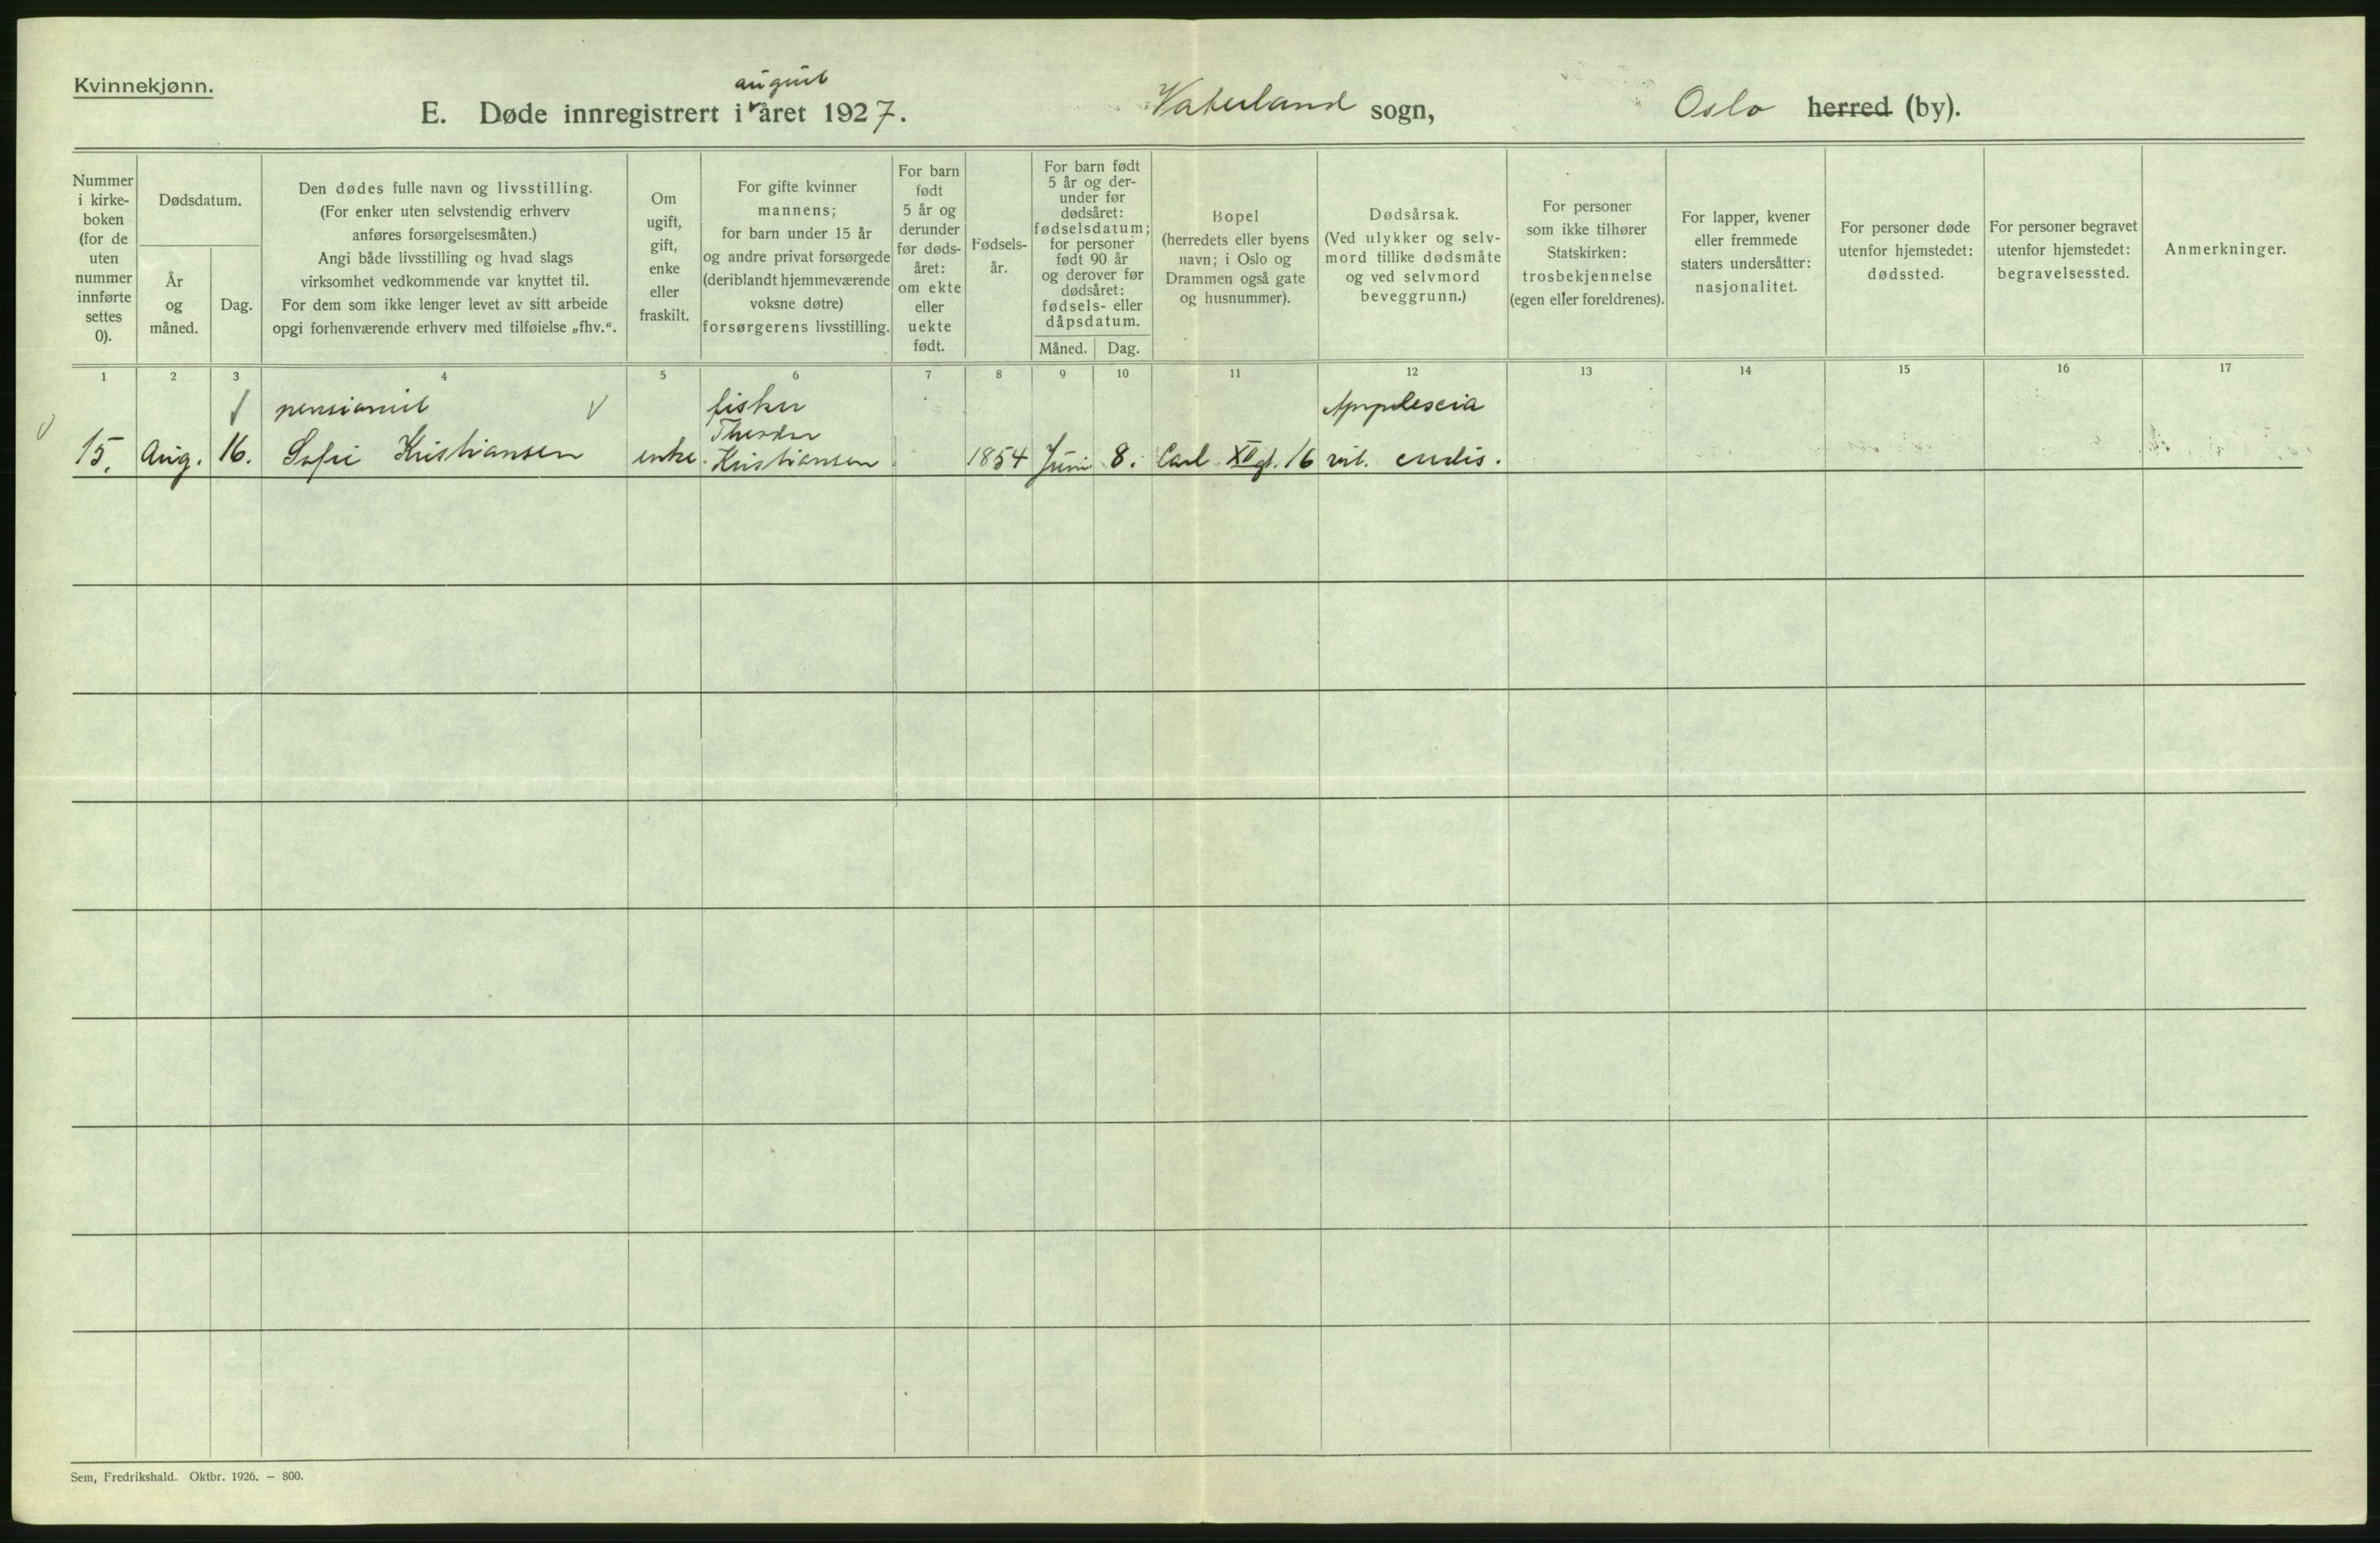 Kvinnekjønn.
august
E. Døde innregistrert i året 1927. Vaterland sogn, Oslo herred (by).
Nummer
i kirke-
boken
(for de
uten
nummer
innførte
settes
0).
Dødsdatum.
År
og
måned.
Dag.
Den dødes fulle navn og livsstilling.
(For enker uten selvstendig erhverv
anføres forsørgelsesmåten.)
Angi både livsstilling og hvad slags
virksomhet vedkommende var knyttet til.
For dem som ikke lenger levet av sitt arbeide
opgi forhenværende erhverv med tilføielse „fhv.“.
Om
ugift,
gift,
enke
eller
fraskilt.
For gifte kvinner
mannens;
for barn under 15 år
og andre privat forsørgede
(deriblandt hjemmeværende
voksne døtre)
forsørgerens livsstilling.
For barn
født
5 år og
derunder
før døds-
året:
om ekte
eller
uekte
født.
Fødsels-
år.
For barn født
5 år og der-
under før
dødsåret:
fødselsdatum;
for personer
født 90 år
og derover før
dødsåret:
fødsels- eller
dåpsdatum.
Måned. Dag.
Bopel
(herredets eller byens
navn; i Oslo og
Drammen også gate
og husnummer).
Dødsårsak.
(Ved ulykker og selv-
mord tillike dødsmåte
og ved selvmord
beveggrunn.)
For personer
som ikke tilhører
Statskirken:
trosbekjennelse
(egen eller foreldrenes).
For lapper, kvener
eller fremmede
staters undersåtter:
nasjonalitet.
For personer døde
utenfor hjemstedet:
dødssted.
For personer begravet
utenfor hjemstedet:
begravelsessted.
Anmerkninger.
1 2 3 4 5 6 7 8 9 10 11 12 13 14 15 16 17
pensionist fisker
15. Aug. 16. Sofie Kristiansen enke Kristiansen 1854 Juni 8. Carl XII gt. 16
Sem, Fredrikshald. Oktbr. 1926. — 800.